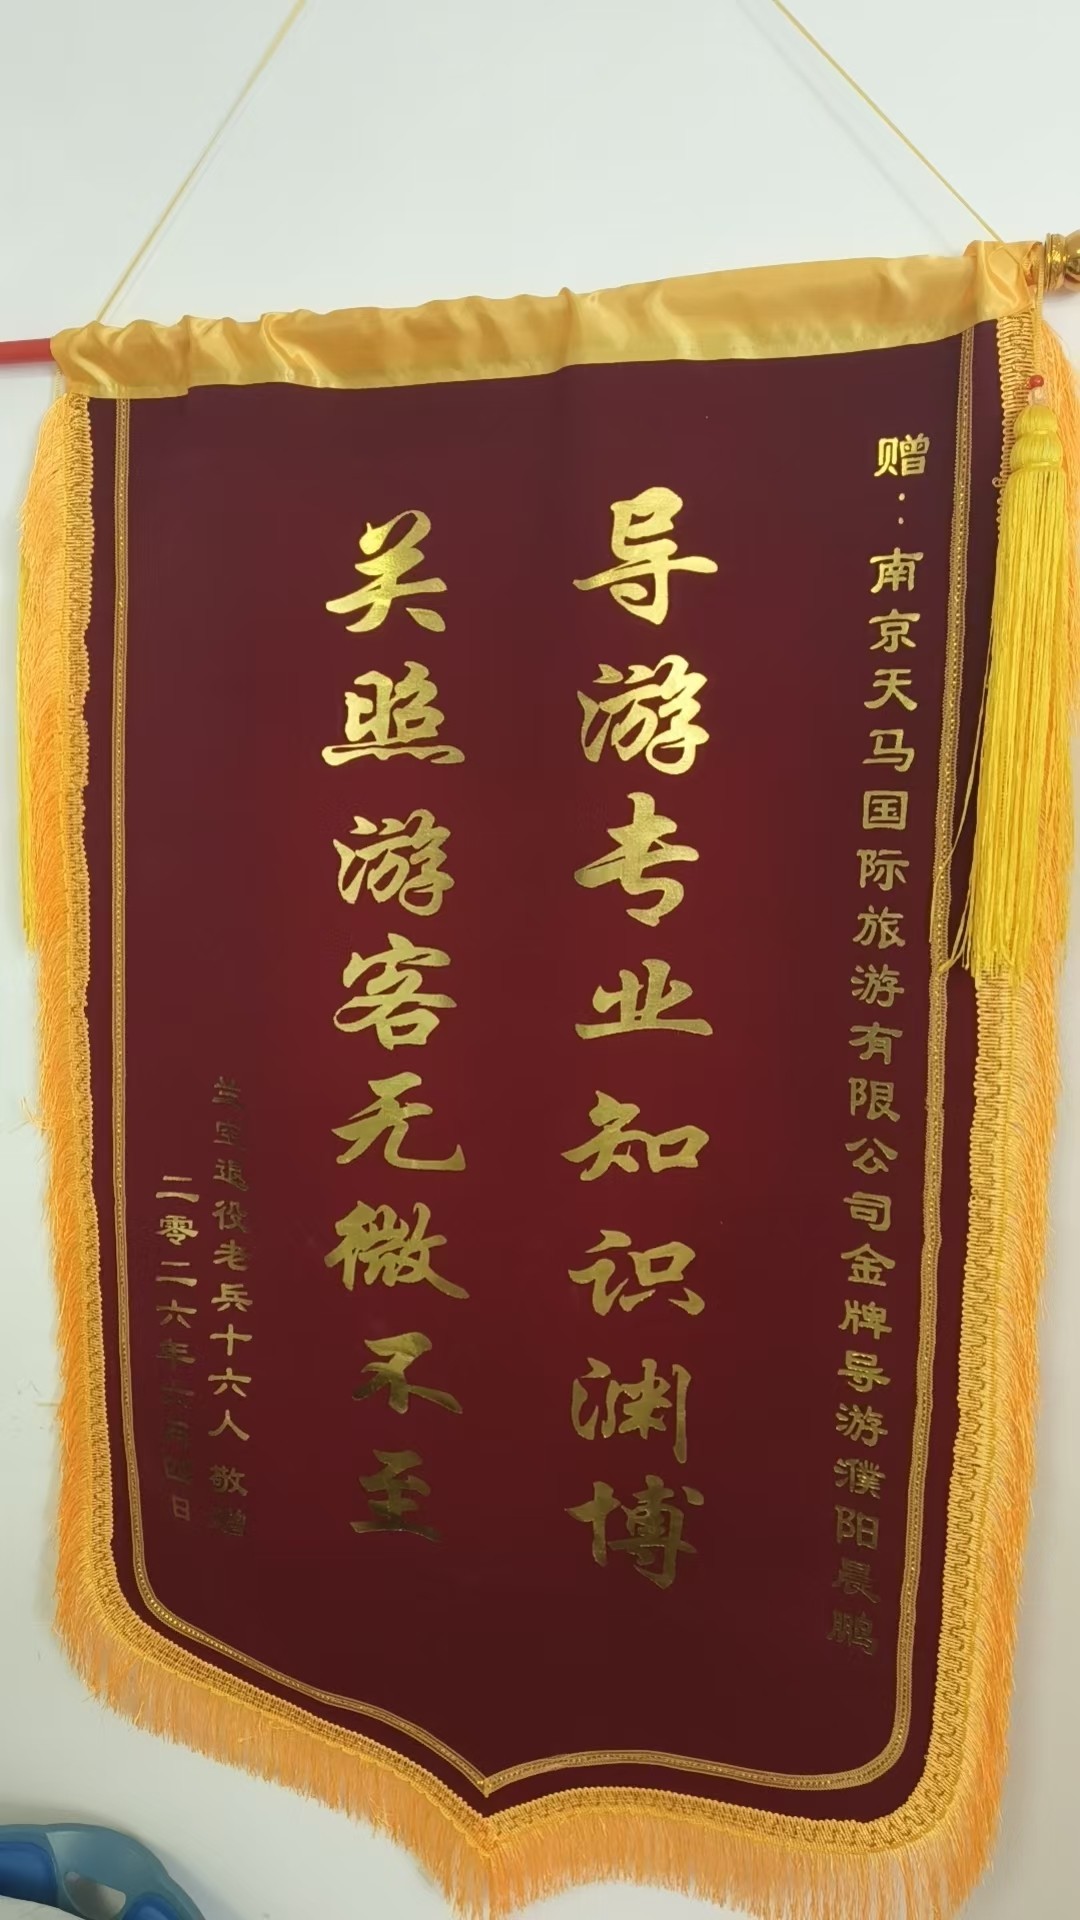 赠：南京天马国际旅游有限公司金牌导游濮阳晨鹏
导游专业知识渊博
关照游客无微不至
兰空退役老兵十六人 敬赠
二零二六年六月四日